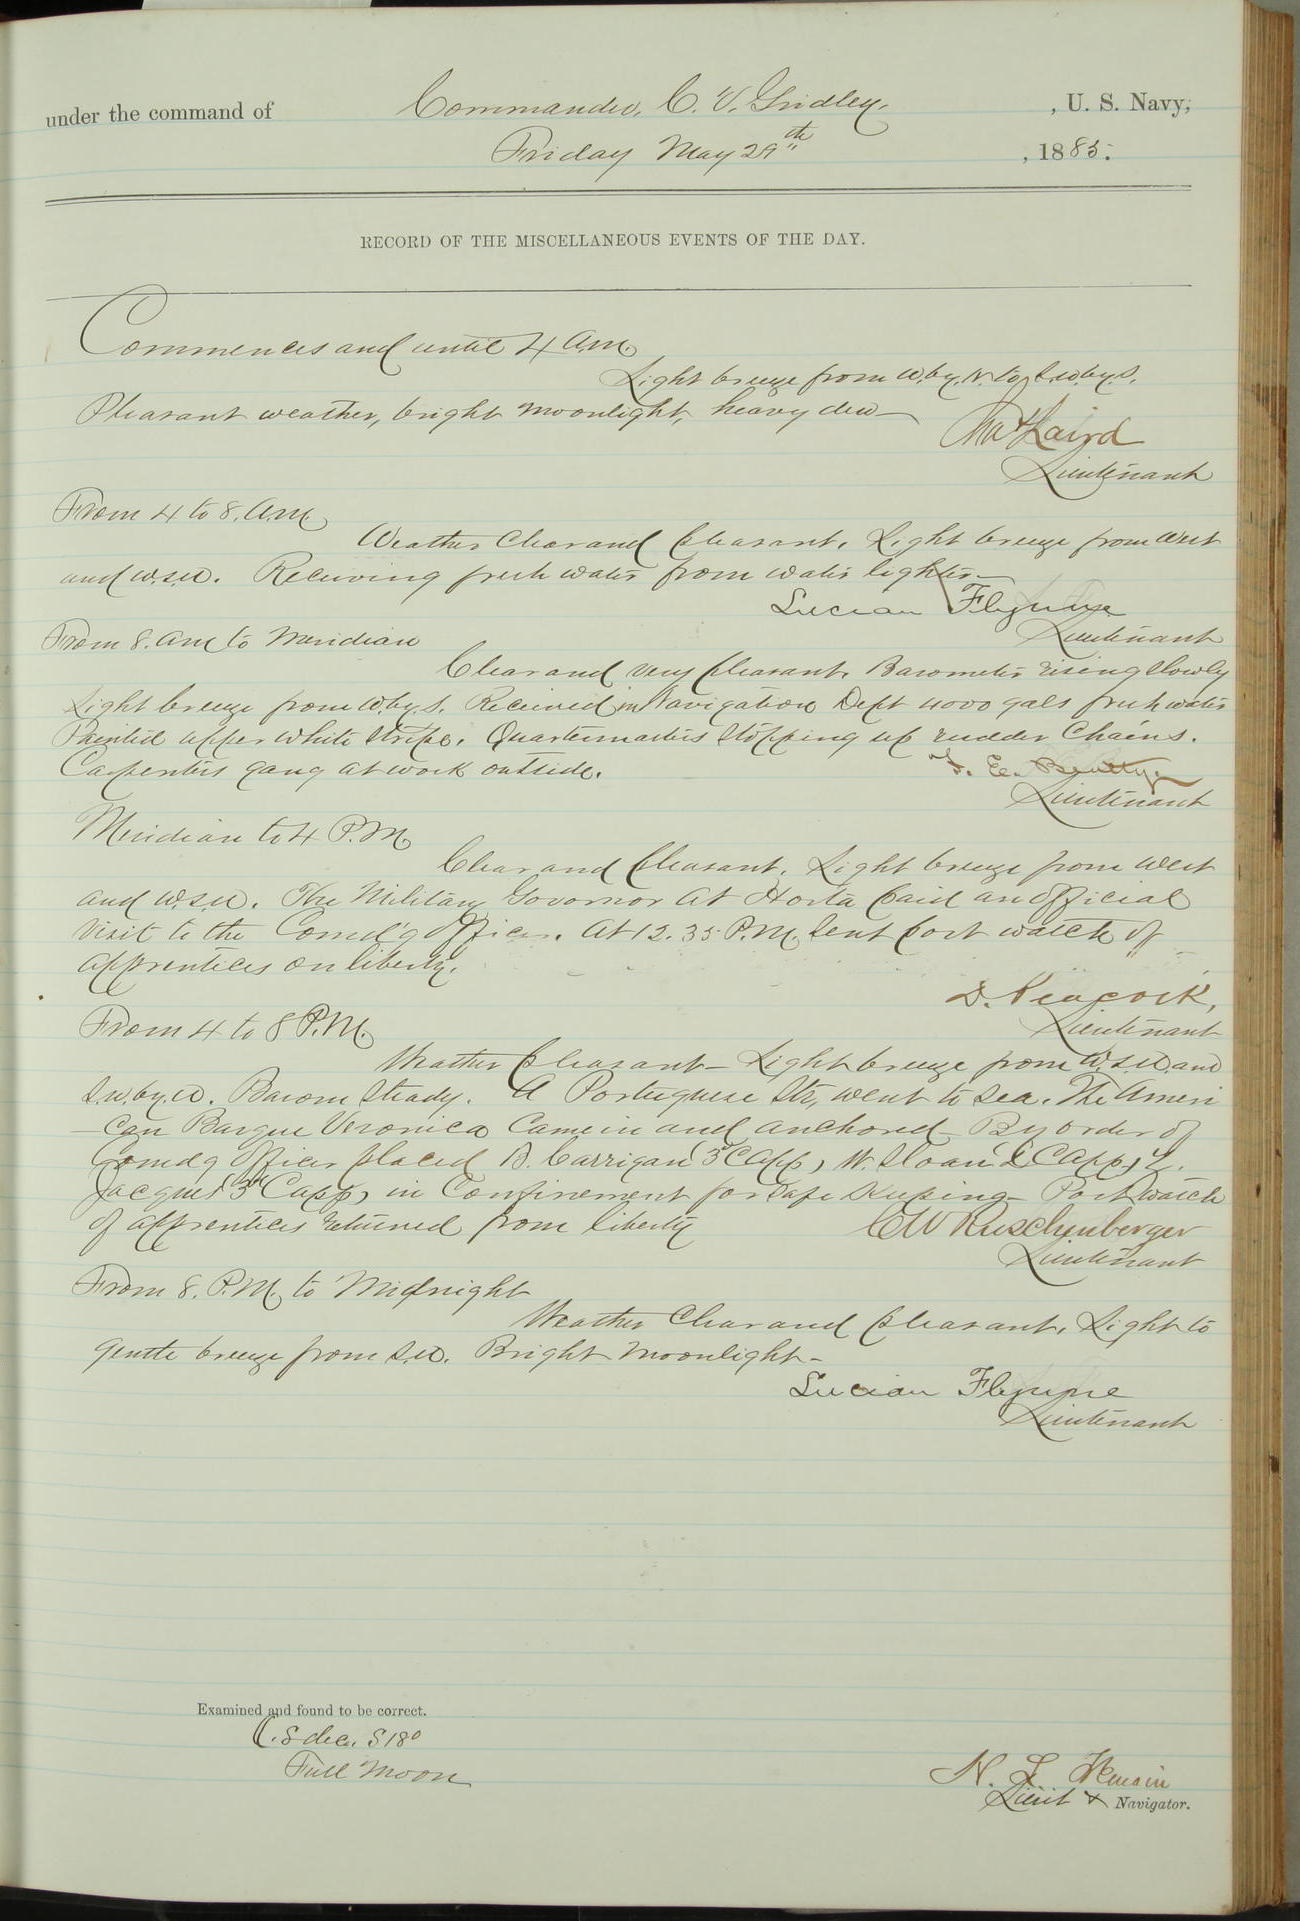 under the command of Commander, C. V. Gridley, , U. S. Navy,
Friday May 29th , 1885.
RECORD OF THE MISCELLANEOUS EVENTS OF THE DAY.
Commences and until 4 a.m.
Light breeze from W.by.N. to S.W.by.S.
Pleasant weather, bright moonlight, heavy dew
Laird
Lieutenant
From 4 to 8. a.m.
Weather clear and pleasant. Light breeze from West
and W.S.W. Receiving fresh water from water lighter—
Lucian Flynne
Lieutenant
From 8. am to Meridian
Clear and very pleasant. Barometer rising slowly
Light breeze from W.by.S. Received in Navigation Dept 4000 gals fresh water
Painted upper white stripe. Quartermasters stopping up rudder chains.
Carpenters gang at work outside.
F. E. Beatty.
Lieutenant
Meridian to 4 P.M.
Clear and pleasant. Light breeze from West
and W.S.W. The Military Govornor at Horta paid an official
visit to the Comd'g Officer. At 12.35 P.M. sent port watch of
apprentices on liberty.
D. Peacock,
Lieutenant
From 4 to 8 P.M.
Weather pleasant— Light breeze from W.S.W. and
S.W.by.W. Barom steady. A Portuguese Str, went to sea. The Ameri
can Barque Veronica came in and anchored— By order of
Comdg Officer placed D. Carrigan 3d C App, W. Sloan 2 C App,
Jacques 3d C app, in Confinement for safe keeping— Port watch
of apprentices returned from liberty
CW Ruschenberger
Lieutenant
From 8. P.M. to Midnight
Weather clear and pleasant. Light to
gentle breeze from S.W. Bright moonlight—
Lucian Flynne
Lieutenant
Examined and found to be correct.
dec. S 18°
Full Moon
N. L.
Lieut & Navigator.